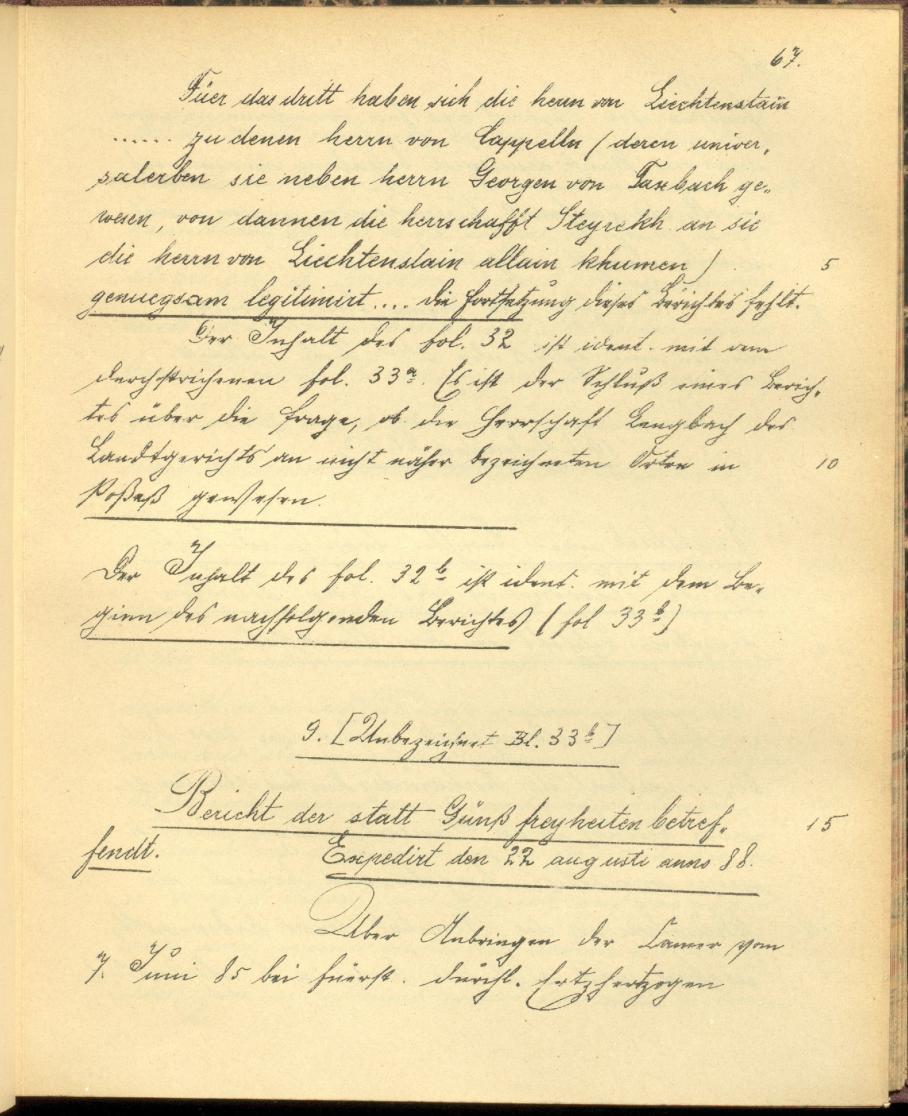 67.
Füer das dritt haben sich die herrn von Liechtenstain
...... zu denen herrn von Cappelln / deren univer,
salerben sie neben herrn Georgen von Taxbach ge„
wesen, von dannen die herrschafft Steyrekh an sie
die herrn von Liechtenstain allain khumen / 5
genuegsam legitimirt.... die Fortsetzung dieses Berichtes fehlt.
Der Inhalt des fol. 32 ist ident. mit dem
durchstrichenen fol. 33a. Es ist der Schluß eines Berich„
tes über die Frage, ob die Herrschaft Lengbach des
Landtgerichts an nicht näher bezeichneten Orten in 10
Poßeß gewesen.
Der Inhalt des fol. 32b ist ident. mit dem Be„
ginn des nachfolgenden Berichtes (fol 33b)
9. [Unbezeichnet Bl. 33b]
Bericht der statt Günß freyheiten betref„ 15
fendt. Expedirt den 22 augusti anno 88.
Über Anbringen der Camer vom
7. Juni 85 bei fürst. durchl. Ertzhertzogen